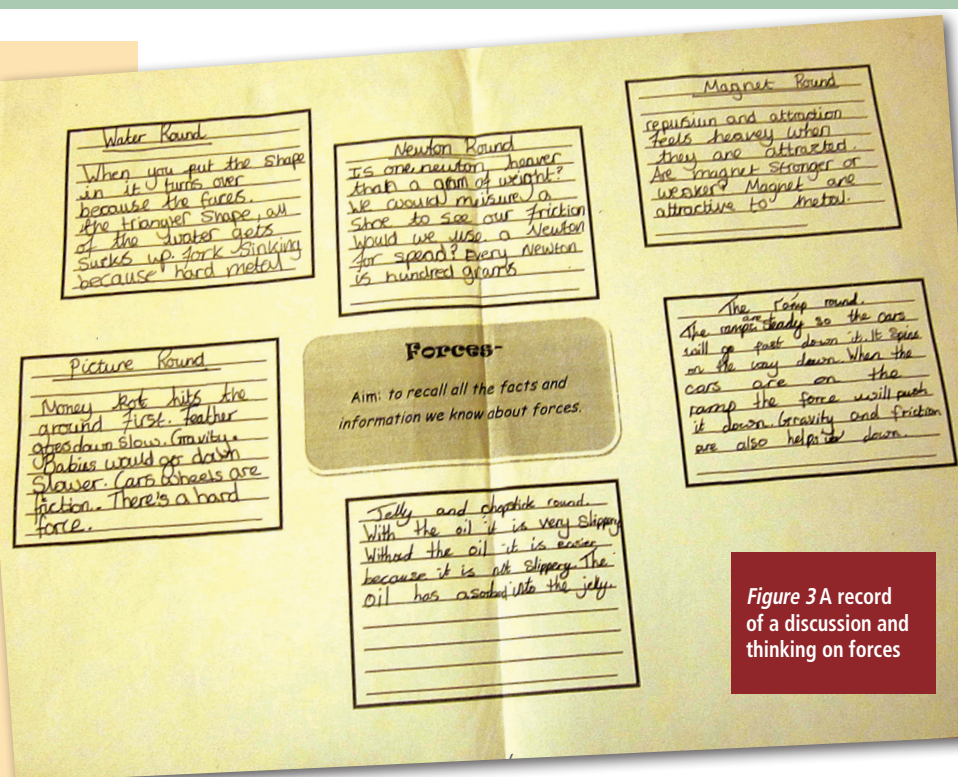 Water Round
When you put the Shape
in it turns over
because the faces.
the triangler Shape, all
of the water gets
Sucks up. Fork Sinking
because hard metal
Newton Round
Is one newton heaver
than a gram of weight?
We would meisure a
Shoe to see our friction
Would we use a Newton
for spead? Every Newton
is hundred grams
Magnet Round
repusiun and attraction
Feels heavey when
they are attrazted.
Are magnet Stronger or
weaker? Magnet are
attractive to metal.
Picture Round
Money hits the
ground first. feather
goes down Slow. Gravity.
Babies would go down
Slower. Cars wheels are
friction. There's a hard
force.
Forces-
Aim: to recall all the facts and
information we know about forces.
The ramp round.
The ramps are steady so the cars
will go fast down it. It Spins
on the way down. When the
cars are on the
ramp the force will push
it down. Gravity and friction
are also helps down.
Jelly and chopstick round.
With the oil it is very Slippery
Without the oil it is easier
because it is not Slippery. The
oil has asorbed into the jelly.
Figure 3 A record
of a discussion and
thinking on forces